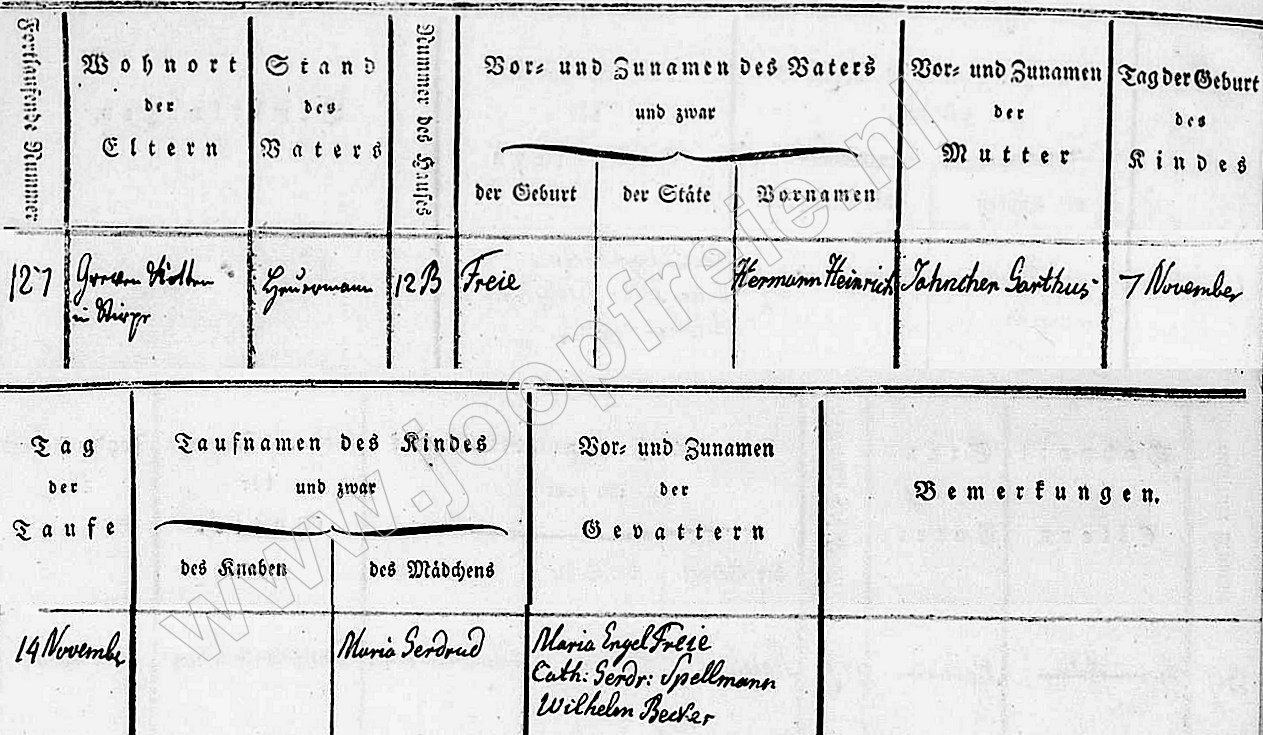 Fortlaufende Nummer
Wohnort
der
Eltern
Stand
des
Vaters
Nummer des Hauses
Vor- und Zunamen des Vaters
und zwar
der Geburt
der Stäte
Vornamen
Vor- und Zunamen
der
Mutter
Tag der Geburt
des
Kindes
127
in
Heuermann
12 B
Freie
Hermann Heinrich
Jahnchen Garthus
7 November
Tag
der
Taufe
Taufnamen des Kindes
und zwar
des Knaben
des Mädchens
Vor- und Zunamen
der
Gevattern
Bemerkungen.
14 November
Maria Gerdrud
Maria Engel Freie
Cath: Gerdr: Spellmann
Wilhelm Becker
www.joopfreie.nl